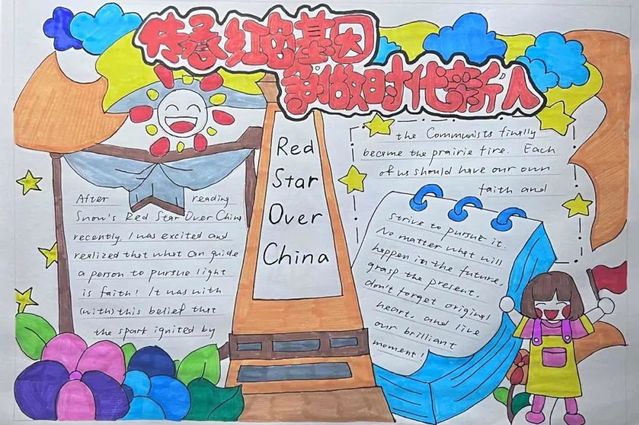 传承红色基因
争做时代新人
Red
Star
Over
China
After reading
Snow's Red Star Over China
recently, I was excited and
realized that what can guide
a person to pursue light
is faith! It was with
(with) this belief that
the spart ignited by
the Communists finally
become the prairie fire. Each
of us should have our own
faith and
strive to pursue it.
No matter what will
happen in the future,
grasp the present,
don't forget original
heart, and live
our brilliant
moment!